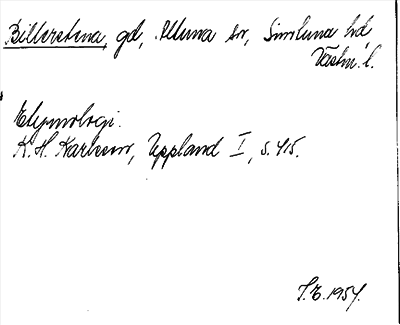 Billerstena, gd, Altuna sn, Simtuna hd
Västm. l.
Etymologi.
K. H. Karlsson, Uppland I, s. 415.
S.E. 1954.